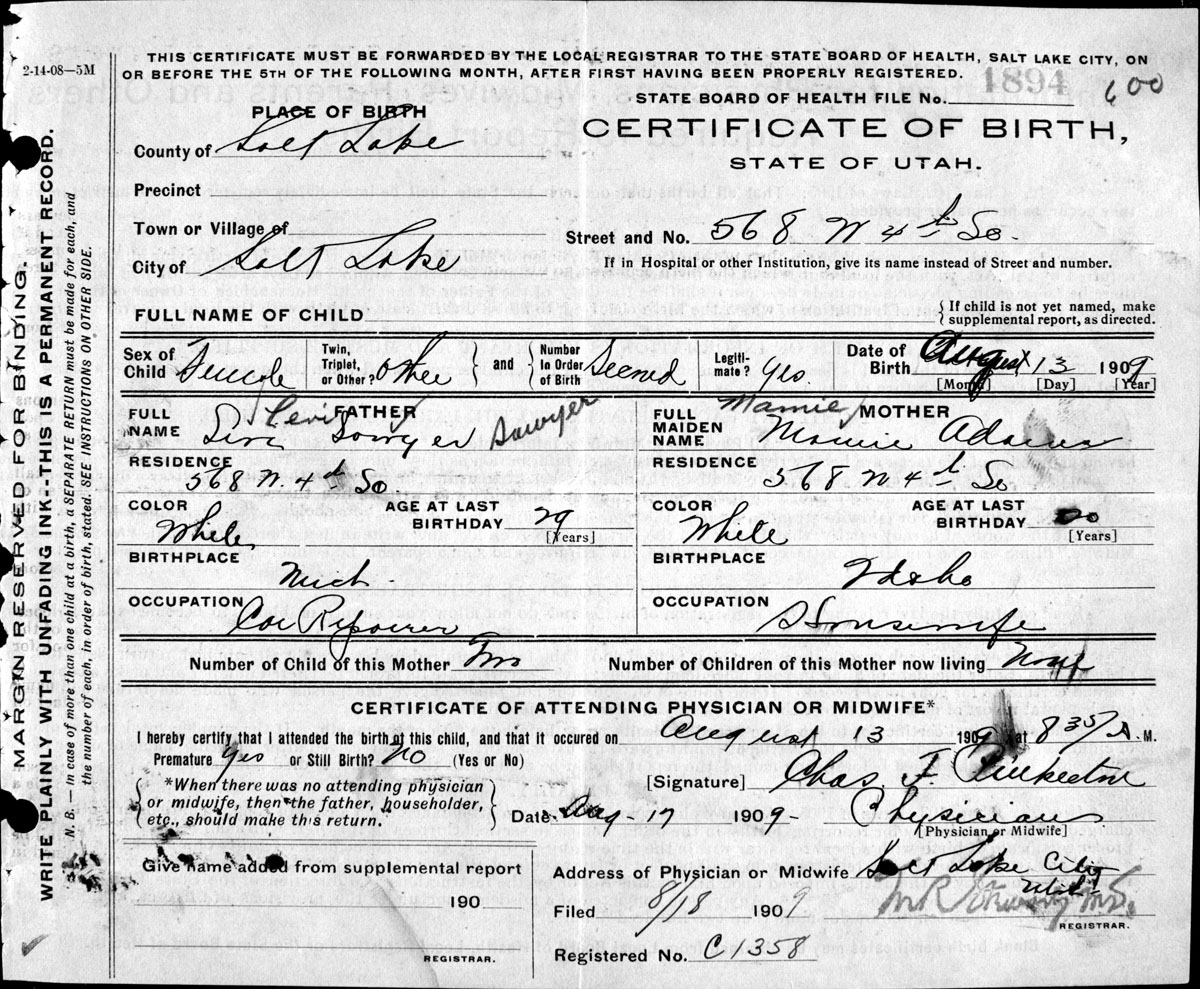 THIS CERTIFICATE MUST BE FORWARDED BY THE LOCAL REGISTRAR TO THE STATE BOARD OF HEALTH, SALT LAKE CITY, ON
2-14-08—5M
OR BEFORE THE 5TH OF THE FOLLOWING MONTH, AFTER FIRST HAVING BEEN PROPERLY REGISTERED.
STATE BOARD OF HEALTH FILE No. 1894 600
PLACE OF BIRTH
CERTIFICATE OF BIRTH,
STATE OF UTAH.
County of Salt Lake
Precinct
Town or Village of
Street and No. 568 W 4th So.
City of Salt Lake
If in Hospital or other Institution, give its name instead of Street and number.
FULL NAME OF CHILD
{ If child is not yet named, make
supplemental report, as directed.
Sex of Child Female
Twin, Triplet, or Other? Other } and { Number In Order of Birth Second
Legiti-mate? Yes
Date of Birth August 13 1909
[Month] [Day] [Year]
FULL NAME
FATHER
Levi Sawyer Sawyer
FULL MAIDEN NAME
MOTHER
Mamie
Mamie Adams
RESIDENCE
568 W. 4th So
RESIDENCE
568 W 4th So
COLOR
White
AGE AT LAST BIRTHDAY 29
[Years]
COLOR
White
AGE AT LAST BIRTHDAY 20
[Years]
BIRTHPLACE
Mich
BIRTHPLACE
Idaho
OCCUPATION
Car Repairer
OCCUPATION
Housewife
Number of Child of this Mother Two
Number of Children of this Mother now living None
CERTIFICATE OF ATTENDING PHYSICIAN OR MIDWIFE*
I hereby certify that I attended the birth of this child, and that it occured on August 13 1909 at 8 35/ A. M.
Premature Yes or Still Birth? No (Yes or No)
[Signature] Chas. F. Pinkerton
{ *When there was no attending physician
or midwife, then the father, householder,
etc., should make this return. }
Date Aug - 17 1909- Physician
[Physician or Midwife]
Give name added from supplemental report
190
REGISTRAR.
Address of Physician or Midwife Salt Lake City
Utah
Filed 8/18 1909
REGISTRAR.
Registered No. C1358
MARGIN RESERVED FOR BINDING.
WRITE PLAINLY WITH UNFADING INK.--THIS IS A PERMANENT RECORD.
N. B.—In case of more than one child at a birth, a SEPARATE RETURN must be made for each, and
the number of each, in order of birth, stated. SEE INSTRUCTIONS ON OTHER SIDE.